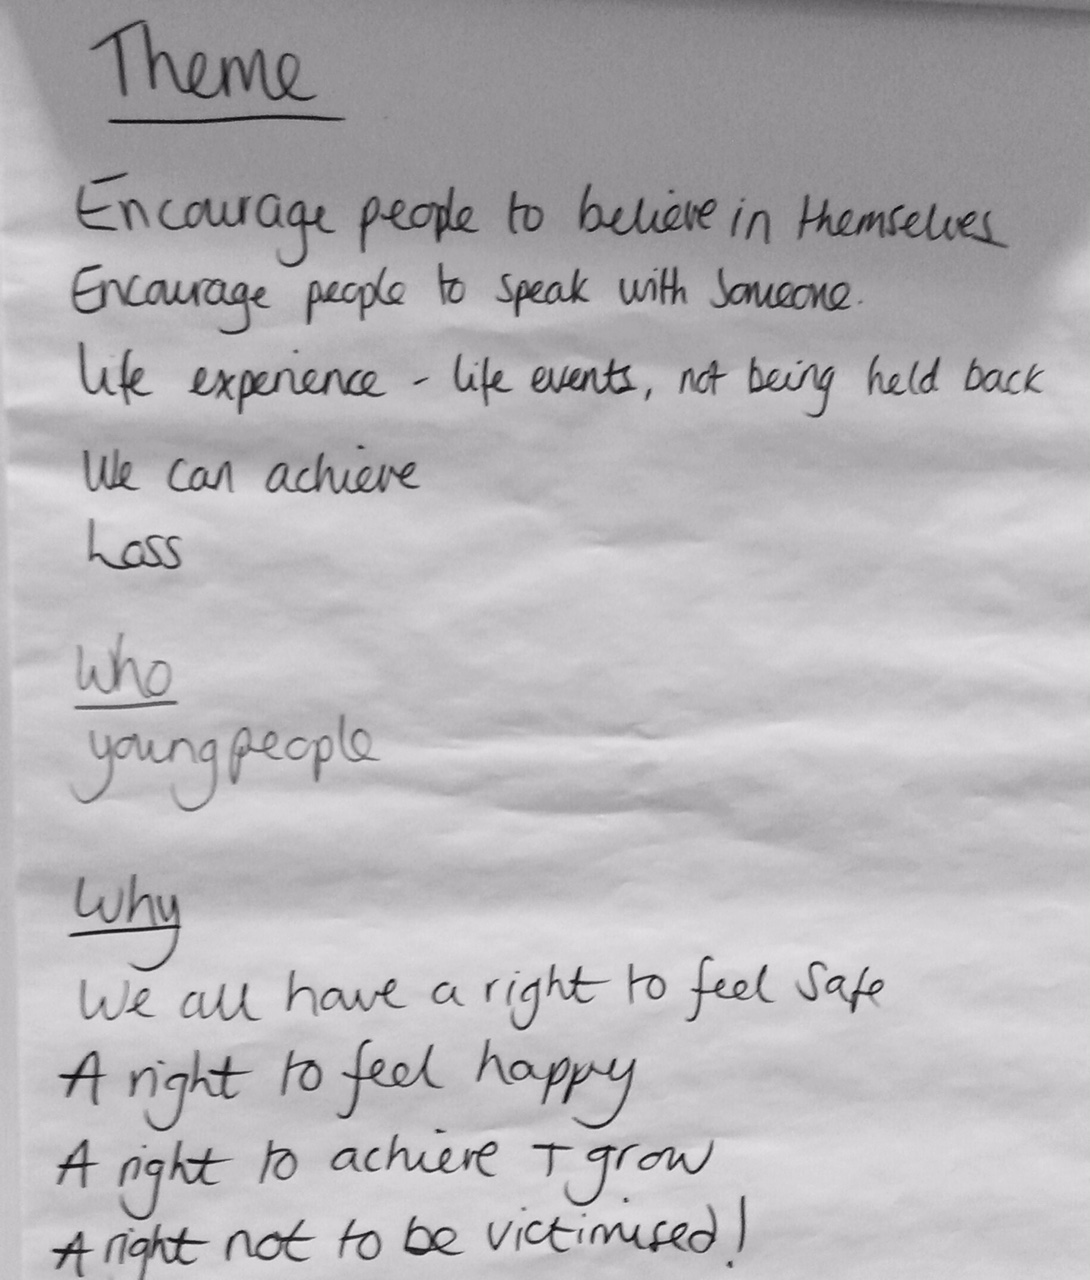 Theme
Encourage people to believe in themselves
Encourage people to speak with someone.
Life experience - life events, not being held back
We can achieve
Loss
Who
young people
Why
We all have a right to feel safe
A right to feel happy
A right to achieve + grow
A right not to be victimised!